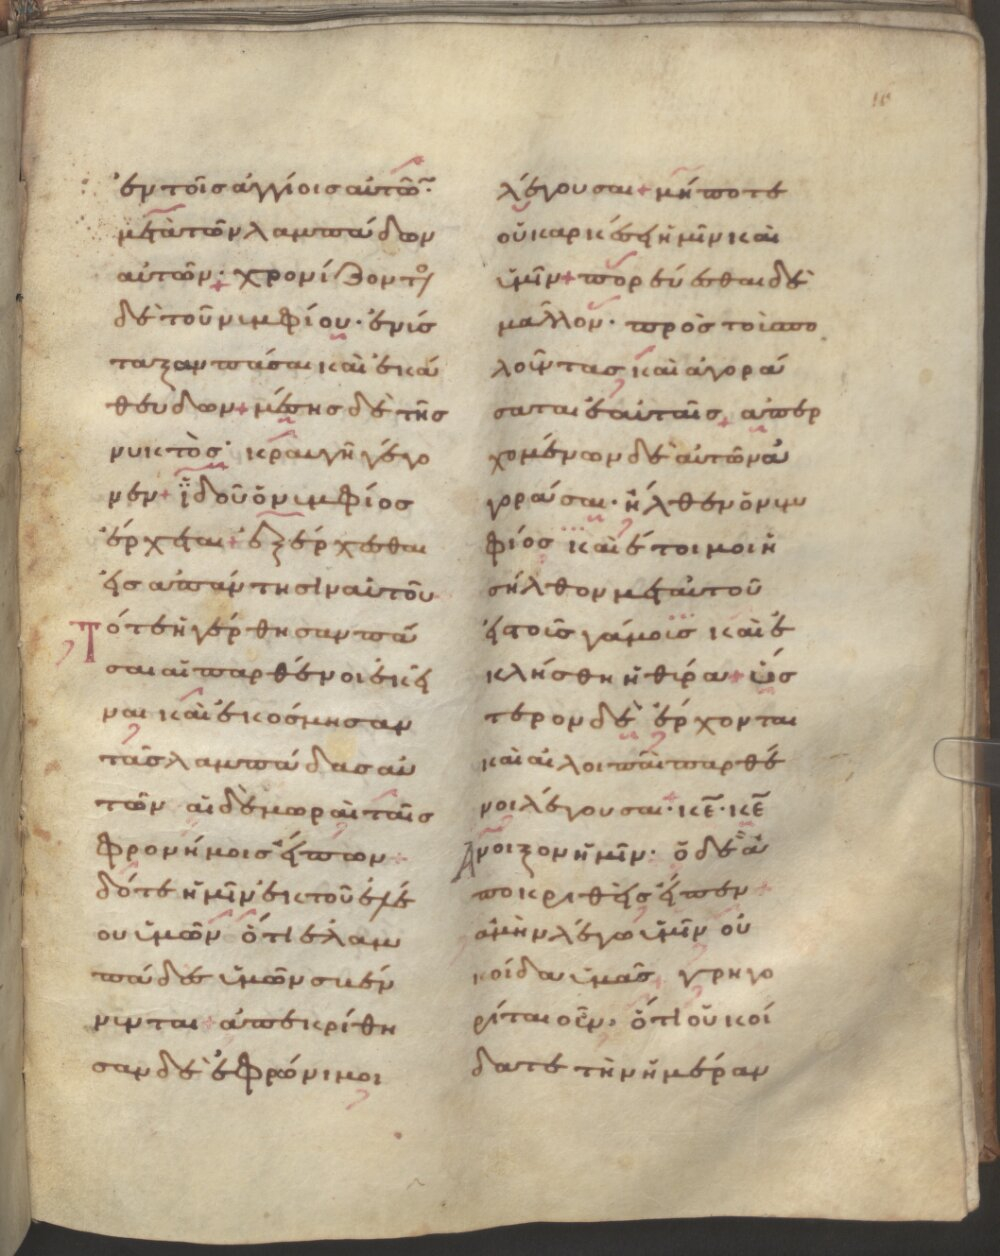 ἐν τοῖς ἀγγίοις αὐτῶ̅·
μετὰ τῶν λαμπάδων
αὐτῶν· χρονίζοντο
δὲ τοῦ νιμφίου· ἐνίσ
ταξαν πάσαι καὶ ἐκά
θευδων + μέσης δὲ τῆς
νυκτὸς· κραυγῆ γέγο
νεν + ϊδοῦ ὁ νιμφίος
ἔρχεται + ἐξέρχεσθαι
εἰς ἀπάντησιν αὐτοῦ
Τότε ἠγέρθησαν πᾶ
σαι αἱ παρθένοι ἐκεῖ
ναι καὶ ἐκοσμησαν
τὰς λαμπάδας αὐ
τῶν αἱ δὲ μωραὶ ταῖς
φρονήμοις εἶπων +
δότε ἡμῖν ἐκ τοῦ ἐλέ
ου ὑμῶν ὅτι ἑ λαμ
πάδες ὑμῶν σιβέν
νινται + ἀπεκρίθη
σαν δὲ ἑ φρόνιμοι
λέγουσαι + μήποτε
οὐκ ἀρκέσει ἡμῖν καὶ
ὑμῖν + πορεύεσθαι δὲ
μᾶλλον· πρὸς τοὶς πο
λοῦντας καὶ ἀγορά
σαται ἑαυταῖς + ἀπερ
χομένων δὲ αὐτῶν ἀ
γοράσαι· ἦλθεν ὁ νιμ
φίος καὶ ἑ τοιμοι ἠ
σήλθον μετ αὐτοῦ
εἰς τοὶς γάμοις καὶ ἐ
κλήσθη ἡ θύρα + ὕσ
τερον δὲ ἔρχονται
καὶ αἱ λοιπαὶ παρθέ
νοι λέγουσαι· κε̅· κε̅
Ἄνοιξον ἡμῖν· ὁ δὲ ἀ
ποκριθεὶς εἶπεν +
ἀμὴν λέγω ὑμῖν οὐ
κ οἶδα ὑμᾶς + γρηγο
ρίται οὖν· ὅτι οὐκ οἴ
δατε τὴν ἡμέραν